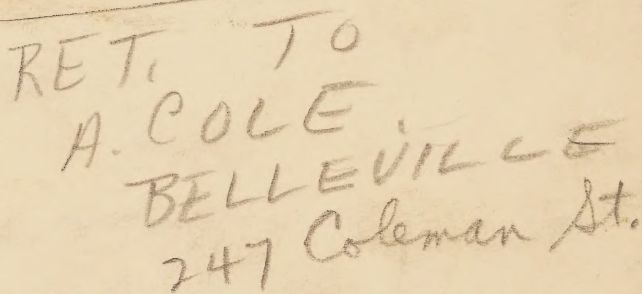 RET. TO
A. COLE
BELLEVILLE
247 Coleman St.